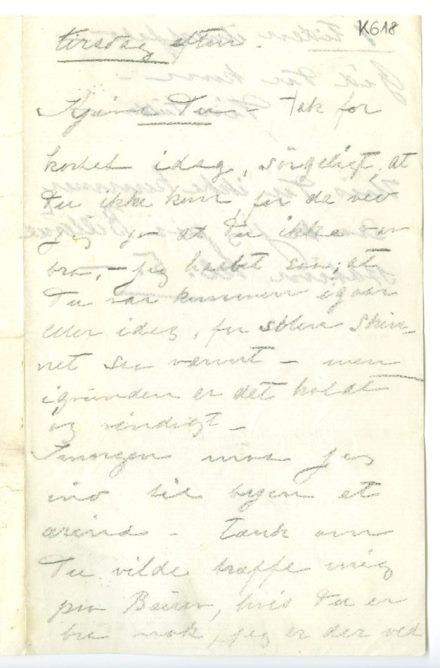 K618
tirsdag aften.
Kjære Du - Tak for
kortet idag, sørgeligt, at
Du ikke kom for da ved
jeg jo at Du ikke var
bra, - jeg haabet saa, at
Du var kommen igaar
eller idag, for solen skin-
net saa varmt - men
igrunden er det koldt
og vindigt -
Imorgen maa jeg
ind til byen et
ærind - Tænk om
Du vilde træffe mig
paa, hvis Du er
bra nok, jeg er der ved